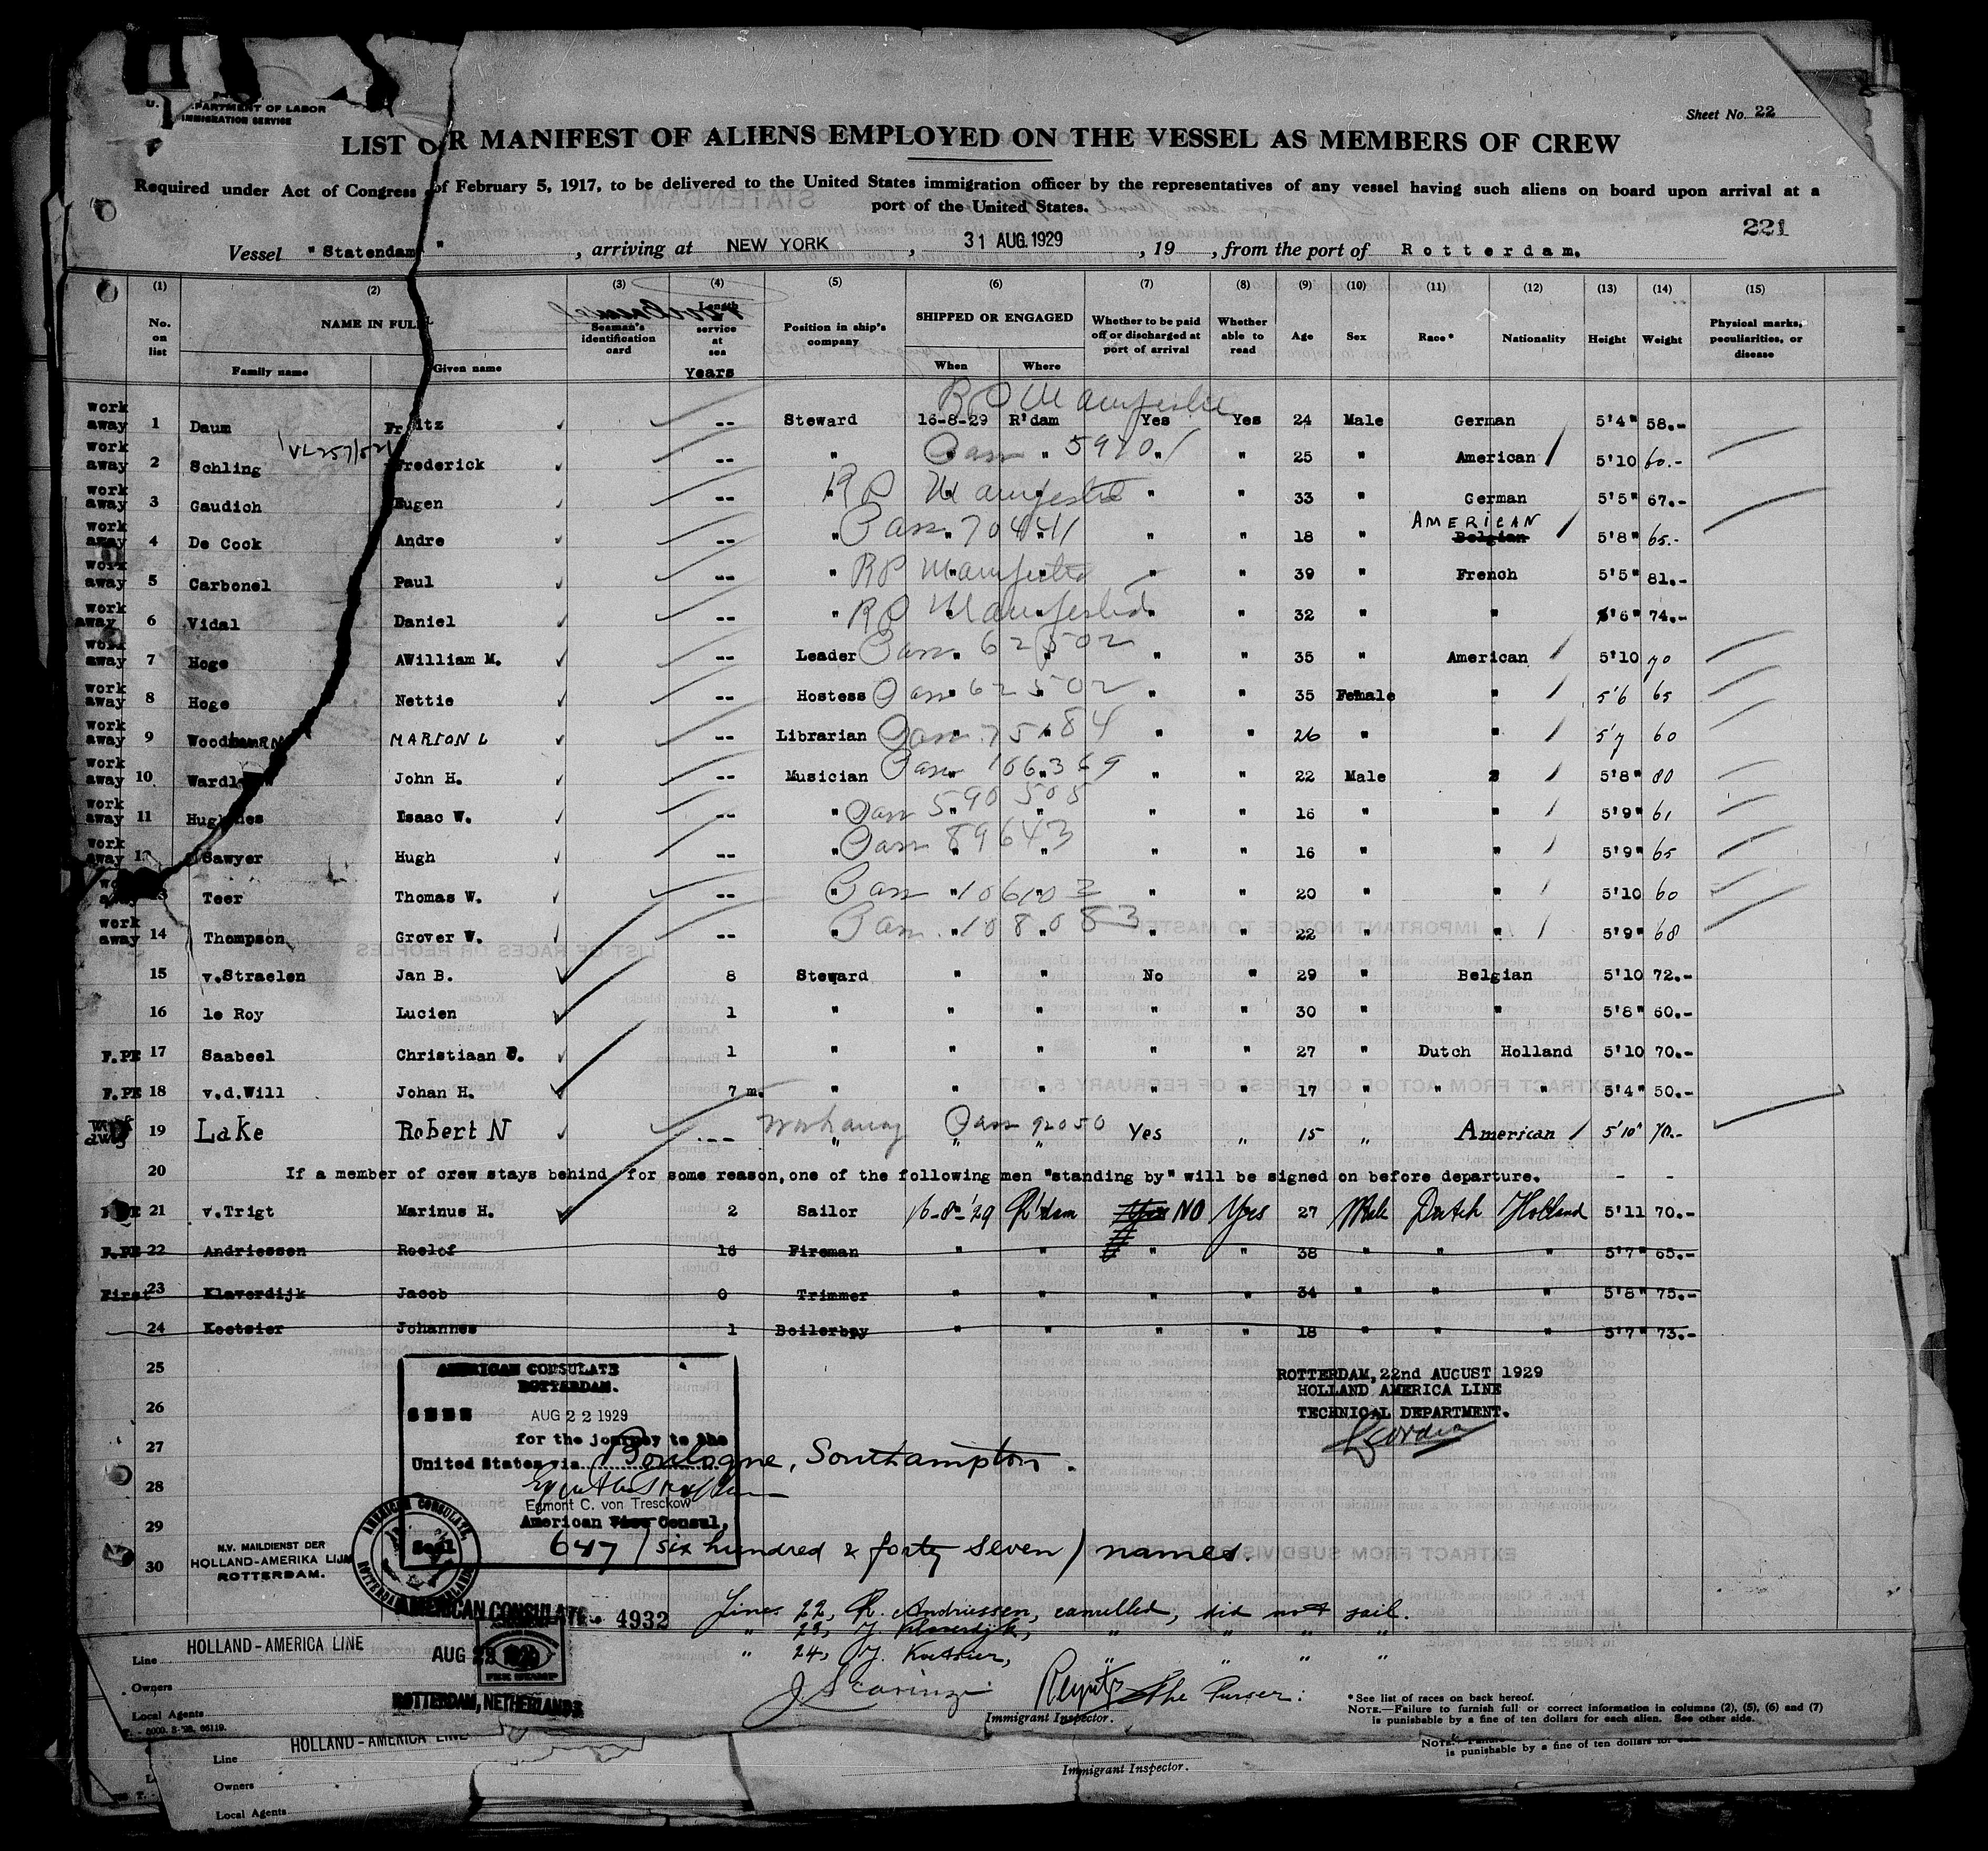 U. DEPARTMENT OF LABOR
IMMIGRATION SERVICE
Sheet No. 22
LIST OR MANIFEST OF ALIENS EMPLOYED ON THE VESSEL AS MEMBERS OF CREW
Required under Act of Congress of February 5, 1917, to be delivered to the United States immigration officer by the representatives of any vessel having such aliens on board upon arrival at a
port of the United States.
221
Vessel "Statendam", arriving at NEW YORK, 31 AUG. 1929, 19, from the port of Rotterdam.
(1) (2) (3) (4) (5) (6) (7) (8) (9) (10) (11) (12) (13) (14) (15)
No. on list NAME IN FULL Family name Given name Seaman's identification card Length service at sea Years Position in ship's company SHIPPED OR ENGAGED When Where Whether to be paid off or discharged at port of arrival Whether able to read Age Sex Race* Nationality Height Weight Physical marks, peculiarities, or disease
work away 1 Daum Fritz -- Steward 16-8-29 R'dam Yes Yes 24 Male German 5'4" 58.-
RP Manifested
work away 2 Schling Frederick -- " Pass 59701 " " " 25 " American 5'10 60.-
work away 3 Gaudich Eugen -- " RP Manifested " " 33 " German 5'5" 67.-
work away 4 De Cook Andre -- " Pass 70441 " " 18 " AMERICAN Belgian 5'8" 65.-
work away 5 Carbonel Paul -- " RP Manifested " " 39 " French 5'5" 81.-
work away 6 Vidal Daniel -- " RP Manifested " " 32 " " 5'6" 74.-
work away 7 Hoge AWilliam M. -- Leader Pass 62502 " " 35 " American 5'10 70
work away 8 Hoge Nettie -- Hostess Pass 62502 " " 35 Female " 5'6 65
work away 9 MARION L -- Librarian Pass 75184 " " 26 " " 5'7 60
work away 10 Wardlaw John H. -- Musician Pass 106369 " " 22 Male " 5'8" 80
work away 11 Hughes Isaac W. -- " Pass 590505 " " 16 " " 5'9" 61
work away 12 Sawyer Hugh -- " Pass 89643 " " 16 " " 5'9" 65
work away 13 Teer Thomas W. -- " Pass 106103 " " 20 " " 5'10 60
work away 14 Thompson Grover W. -- " Pass 108083 " " 22 " " 5'9" 68
15 v.Straelen Jan B. 8 Steward " " No " 29 " Belgian 5'10 72.-
16 le Roy Lucien 1 " " " " " 30 " " 5'8" 60.-
F.PE 17 Saabeel Christiaan C. 1 " " " " " 27 " Dutch Holland 5'10 70.-
F.PE 18 v.d.Will Johan H. 7 m. " " " " " 17 " " " 5'4" 50.-
work away 19 Lake Robert N --- workaway " Pass 92050 Yes " 15 " American 5'10" 70.-
20 If a member of crew stays behind for some reason, one of the following men "standing by" will be signed on before departure. - -
21 v.Trigt Marinus H. 2 Sailor 16-8-'29 R'dam NO Yes 27 Male Dutch Holland 5'11 70.-
F.PE 22 Andriessen Roelof 16 Fireman " " " " 38 " " " 5'7" 65.-
First 23 Klaverdijk Jacob 0 Trimmer " " " " 34 " " " 5'8" 75.-
24 Koetsier Johannes 1 Boilerboy " " " " 18 " " " 5'7" 73.-
25
26
27
28
29
30
AMERICAN CONSULATE
ROTTERDAM.
SEEN AUG 22 1929
for the journey to the
United States via Boulogne, Southampton.
Egmont C. von Tresckow
American Vice Consul,
Seal
647 (six hundred & forty seven) names.
ROTTERDAM, 22nd AUGUST 1929
HOLLAND AMERICA LINE
TECHNICAL DEPARTMENT.
N.V. MAILDIENST DER
HOLLAND-AMERIKA LIJN
ROTTERDAM.
AMERICAN CONSULATE, ROTTERDAM, HOLLAND
AMERICAN CONSULATE No. 4932
AUG 22
FEE STAMP
ROTTERDAM, NETHERLANDS
Lines 22, R. Andriessen, cancelled, did not sail.
" 23, J. Klaverdijk, " " " "
" 24, J. Koetsier, " " " "
The Purser:
Immigrant Inspector.
Line HOLLAND-AMERICA LINE
Owners
Local Agents
*See list of races on back hereof.
NOTE.—Failure to furnish full or correct information in columns (2), (5), (6) and (7)
is punishable by a fine of ten dollars for each alien. See other side.
Line HOLLAND-AMERICA LINE
Owners
Local Agents
Immigrant Inspector.
NOTE.—Failure
is punishable by a fine of ten dollars for each